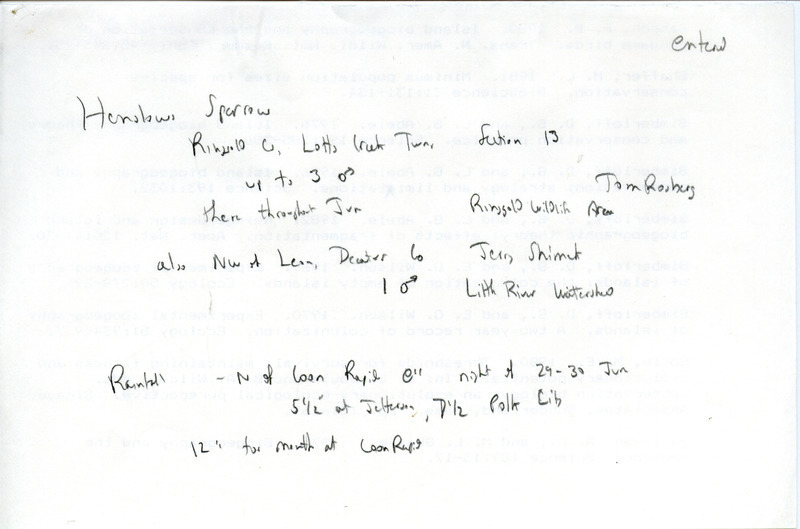 entered
Henslows Sparrow
Ringgold Co, Lotts Creek Twn, Section 13
up to 3 ♂ Tom Rosburg
there throughout Jun Ringgold Wildlife Area
also NW of Leon, Decatur Co Jerry
1 ♂ Little River Watershed
Rainfall - N of Coon Rapids night of 29-30 Jun
5 1/2" at Jefferson, 7 1/2 Polk City
12" for month at Coon Rapids